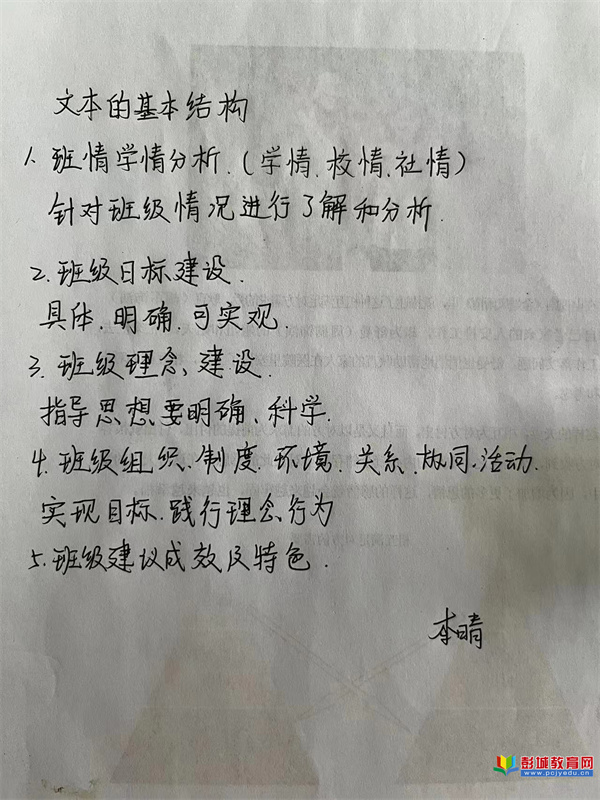 文本的基本结构
1. 班情学情分析.(学情、校情、社情)
针对班级情况进行了解和分析.
2. 班级目标建设.
具体、明确、可实观.
3. 班级理念建设.
指导思想要明确、科学.
4. 班级组织、制度、环境、关系、协同、活动.
实现目标、践行理念行为
5. 班级建议成效及特色.
李晴
彭城教育网
www.pcjyedu.cn